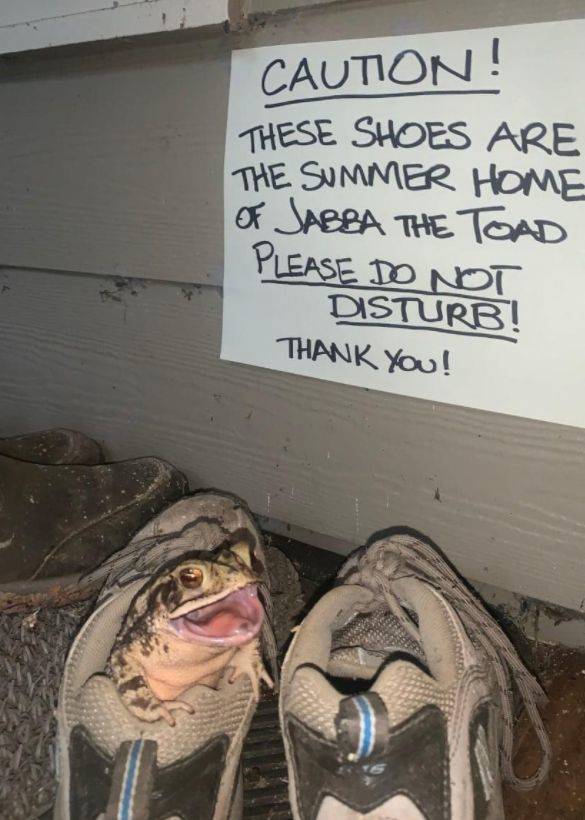 CAUTION!
THESE SHOES ARE
THE SUMMER HOME
OF JABBA THE TOAD
PLEASE DO NOT
DISTURB!
THANK YOU!